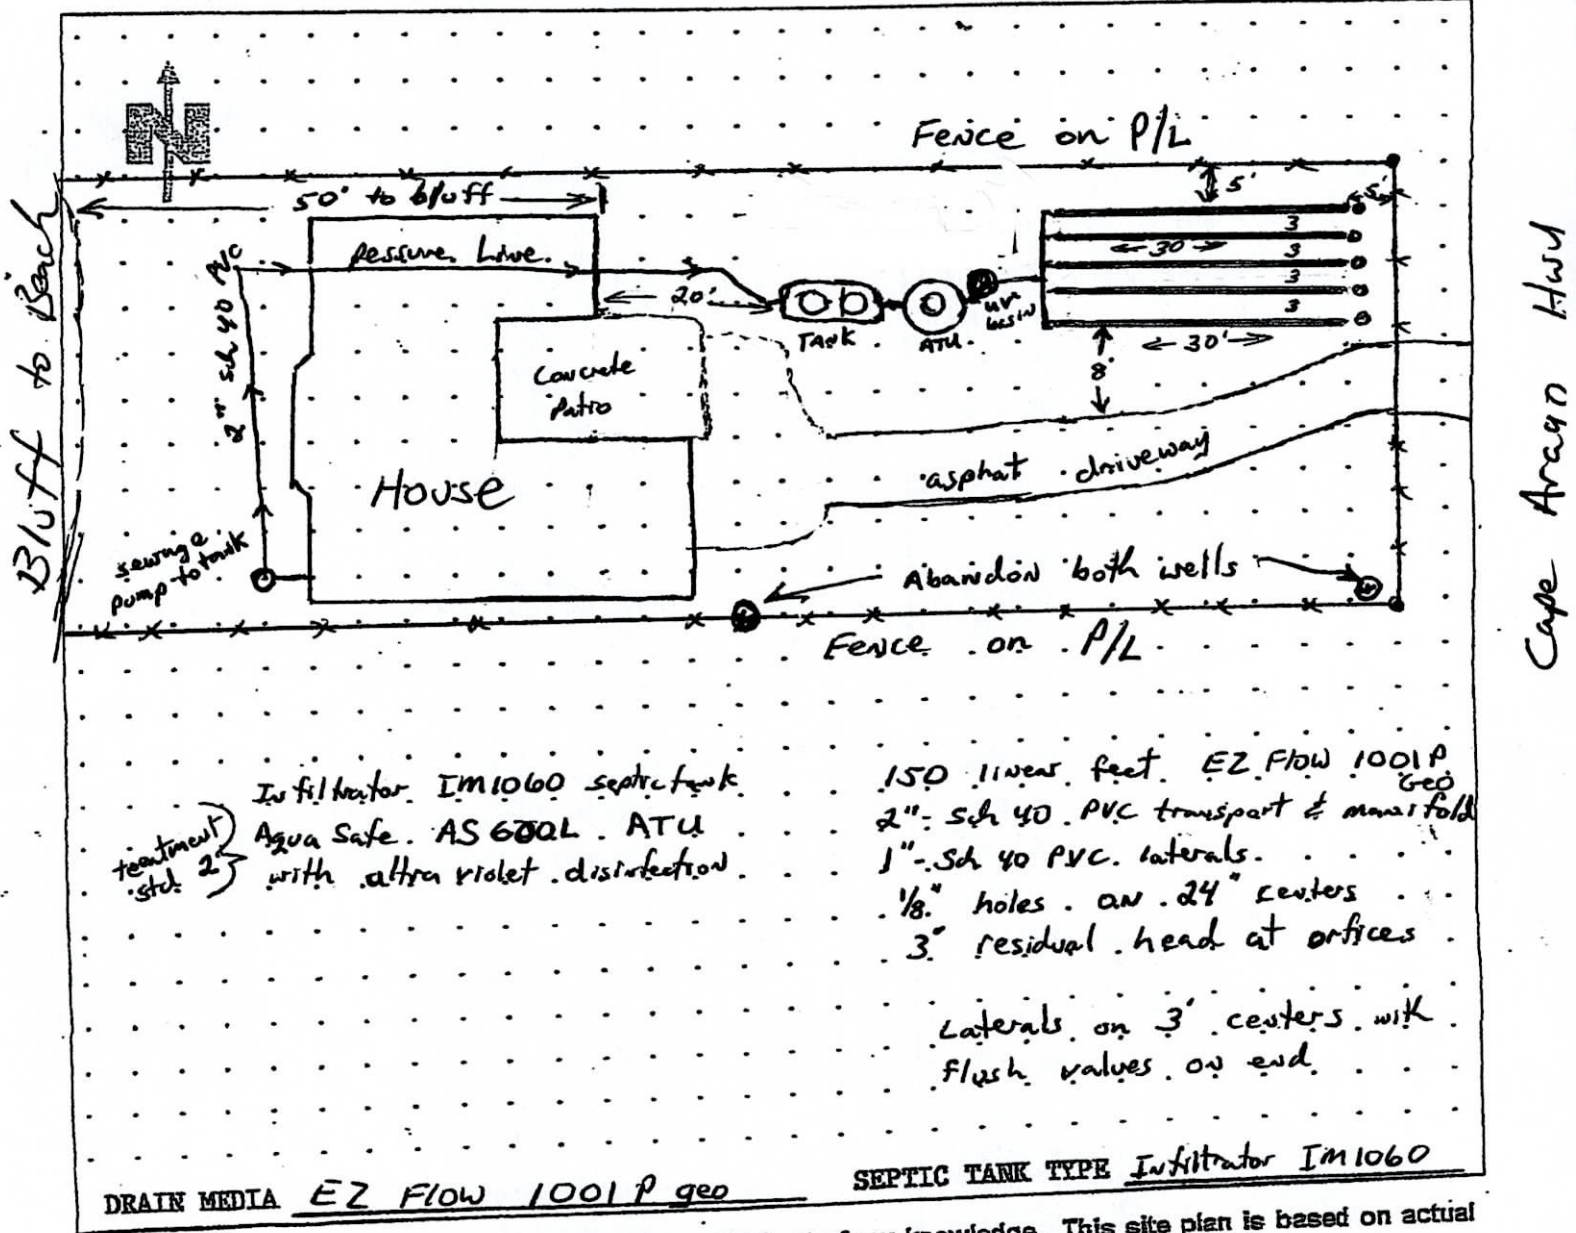 N
Fence on P/L
50' to bluff
5'
5'
Bluff to Beach
2" sch 40 PVC
Pressure Line
3
30
3
3
3
20'
TANK
ATU
UV basin
30'
8'
Concrete
Patio
House
asphat driveway
Cape Arago Hwy
sewage
pump to tank
Abandon both wells
Fence on P/L
Infiltrator IM1060 septic tank
Aqua Safe AS600L ATU
with altra violet disinfection
treatment
std. 2
150 linear feet EZ Flow 1001P
Geo
2" Sch 40 PVC transport & manifold
1" Sch 40 PVC laterals
1/8" holes on 24" centers
3' residual head at orfices
Laterals on 3' centers with
flush valves on end
DRAIN MEDIA EZ Flow 1001P geo
SEPTIC TANK TYPE Infiltrator IM1060
knowledge. This site plan is based on actual